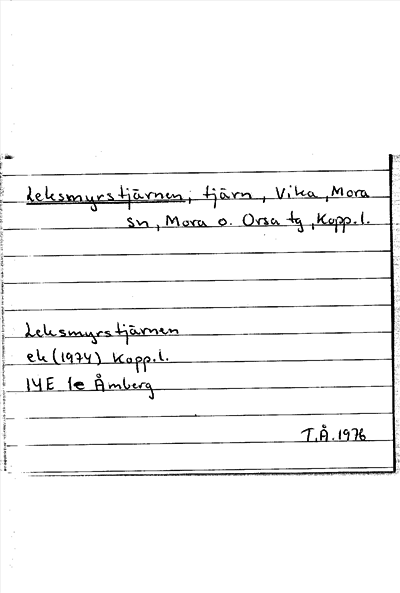 Leksmyrstjärnen, tjärn, Vika, Mora
sn, Mora o. Orsa tg, Kopp.l.
Leksmyrstjärnen
ek (1974) Kopp.l.
14E 1e Åmberg
T.Å. 1976